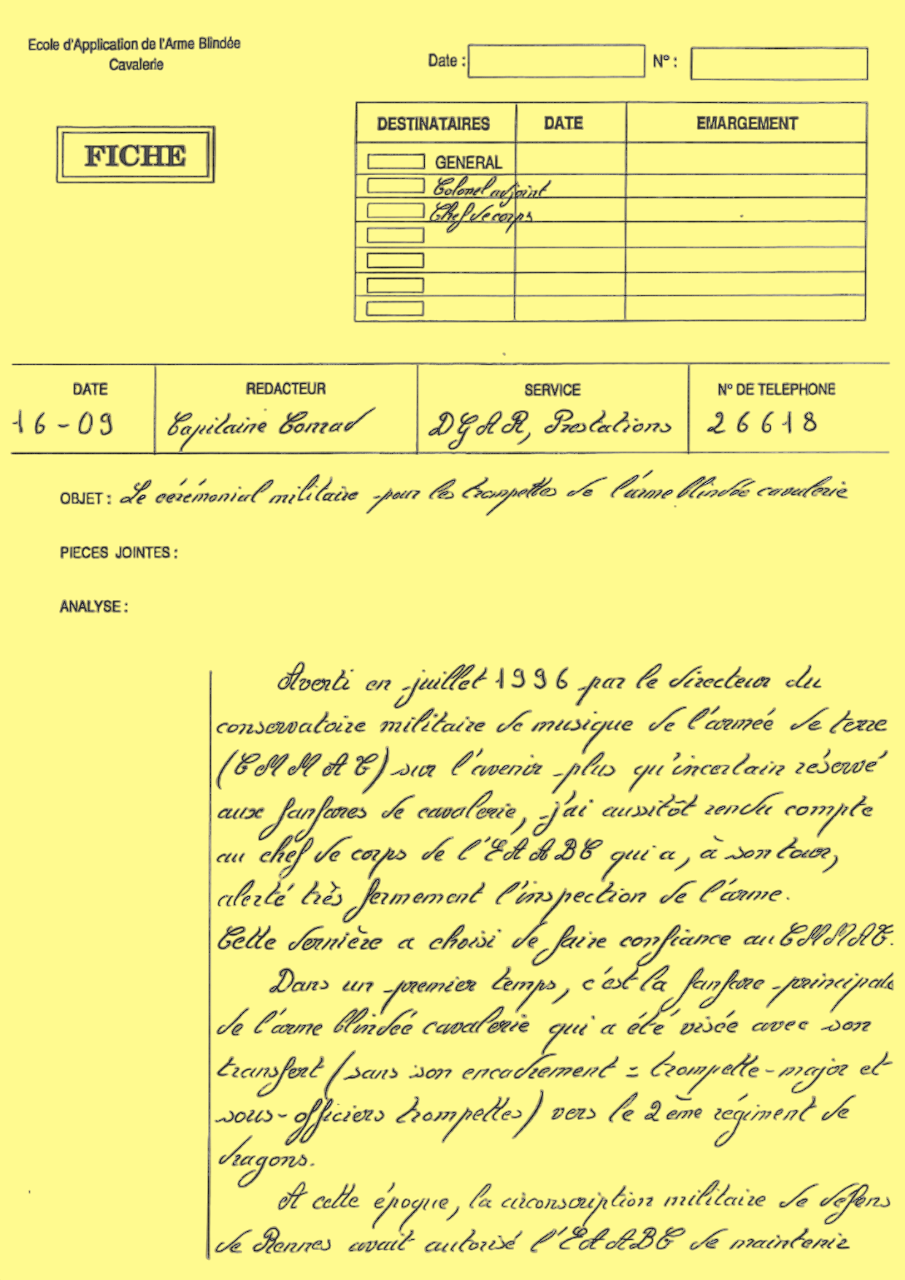 Ecole d'Application de l'Arme Blindée
Cavalerie
Date :
N° :
FICHE
DESTINATAIRES DATE EMARGEMENT
GENERAL
Colonel adjoint
Chef de corps
DATE REDACTEUR SERVICE N° DE TELEPHONE
16-09 Capitaine Conrad DGAR, Prestations 26618
OBJET : Le cérémonial militaire pour les trompettes de l'arme blindée cavalerie
PIECES JOINTES :
ANALYSE :
Averti en juillet 1996 par le directeur du
conservatoire militaire de musique de l'armée de terre
(CMMAT) sur l'avenir plus qu'incertain réservé
aux fanfares de cavalerie, j'ai aussitôt rendu compte
au chef de corps de l'EAABC qui a, à son tour,
alerté très fermement l'inspection de l'arme.
Cette dernière a choisi de faire confiance au CMMAT.
Dans un premier temps, c'est la fanfare principale
de l'arme blindée cavalerie qui a été visée avec son
transfert (sans son encadrement = trompette-major et
sous-officiers trompettes) vers le 2ème régiment de
dragons.
A cette époque, la circonscription militaire de défens
de Rennes avait autorisé l'EAABC de maintenir